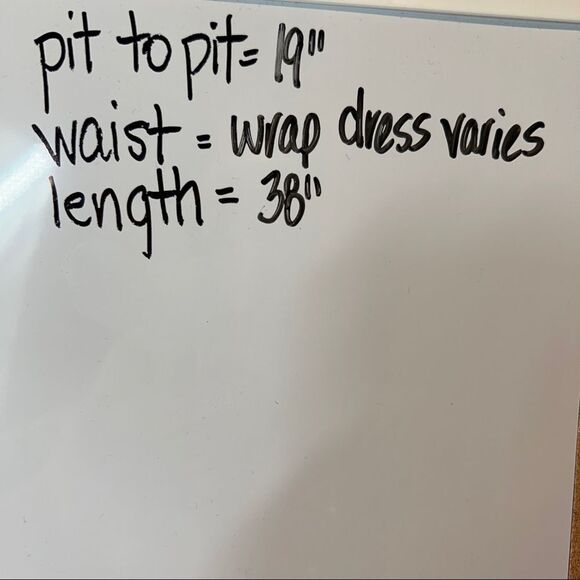 pit to pit= 19"
waist = wrap dress varies
length = 38"